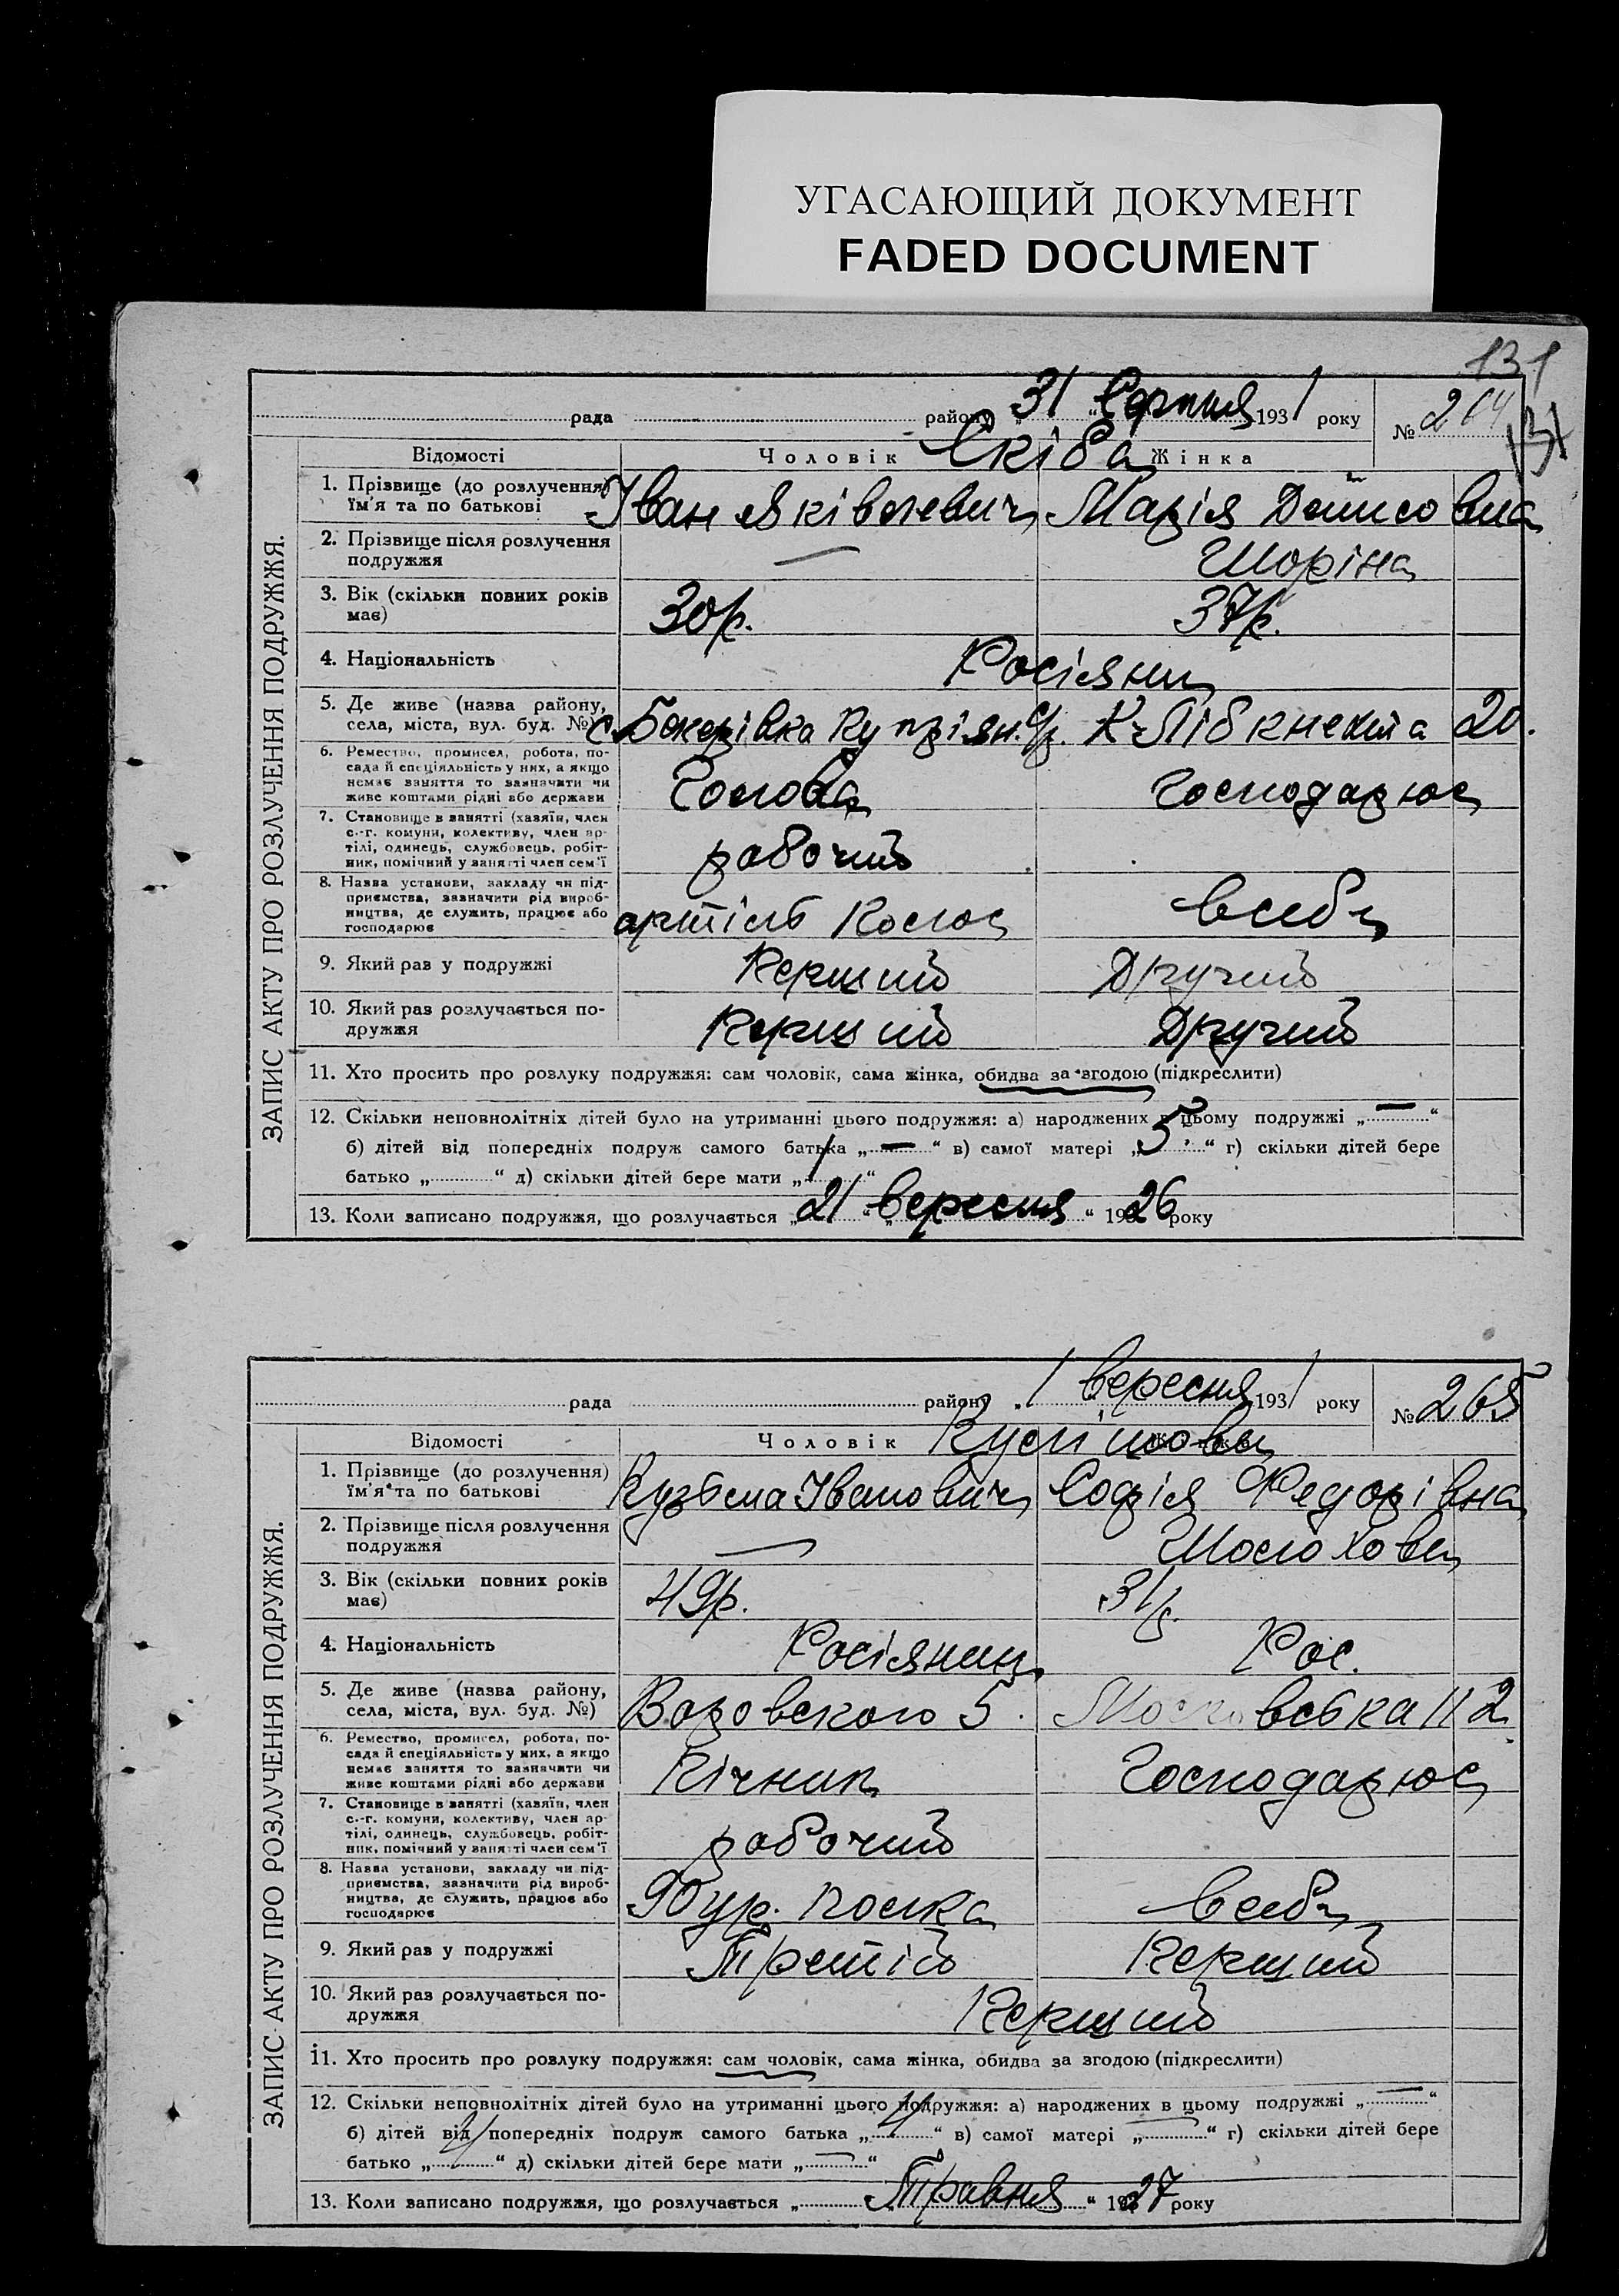 УГАСАЮЩИЙ ДОКУМЕНТ
FADED DOCUMENT
131
рада району „31 Серпня 1931 року № 264
131
Відомості Чоловік Жінка
Скіба
1. Прізвище (до розлучення) ім'я та по батькові Іван Яківлевич Марія Денисовна
2. Прізвище після розлучення подружжя — Шоріна
3. Вік (скільки повних років має) 30р. 37р.
4. Національність Росіяни
5. Де живе (назва району, села, міста, вул. буд. №) К-Лібкнехта 20.
6. Ремество, промисел, робота, посада й спеціяльність у них, а якщо немає заняття то зазначити чи живе коштами рідні або держави Голова Господарює
7. Становище в занятті (хазяїн, член с.-г. комуни, колективу, член артілі, одинець, службовець, робітник, помічний у занятті член сем'ї рабочий
8. Назва установи, закладу чи підприємства, зазначити рід виробництва, де служить, працює або господарює артіль в себе
9. Який раз у подружжі Перший Другий
10. Який раз розлучається подружжя Перший Другий
11. Хто просить про розлуку подружжя: сам чоловік, сама жінка, обидва за згодою (підкреслити)
12. Скільки неповнолітніх дітей було на утриманні цього подружжя: а) народжених в цьому подружжі „—“
б) дітей від попередніх подруж самого батька „—“ в) самої матері „5“ г) скільки дітей бере
батько „ “ д) скільки дітей бере мати „ “
13. Коли записано подружжя, що розлучається „21 вересня “ 1926 року
ЗАПИС АКТУ ПРО РОЗЛУЧЕННЯ ПОДРУЖЖЯ.
рада району „1 вересня 1931 року № 265
Відомості Чоловік
1. Прізвище (до розлучення) ім'я та по батькові Кузьма Іванович Софія Федорівна
2. Прізвище після розлучення подружжя — Шолохова
3. Вік (скільки повних років має) 49р. 31р.
4. Національність Росіянин Рос.
5. Де живе (назва району, села, міста, вул. буд. №) Воровського 5. Московська 112
6. Ремество, промисел, робота, посада й спеціяльність у них, а якщо немає заняття то зазначити чи живе коштами рідні або держави Пічник Господарює
7. Становище в занятті (хазяїн, член с.-г. комуни, колективу, член артілі, одинець, службовець, робітник, помічний у занятті член сем'ї рабочий
8. Назва установи, закладу чи підприємства, зазначити рід виробництва, де служить, працює або господарює в себе
9. Який раз у подружжі Третій Перший
10. Який раз розлучається подружжя Перший
11. Хто просить про розлуку подружжя: сам чоловік, сама жінка, обидва за згодою (підкреслити)
12. Скільки неповнолітніх дітей було на утриманні цього подружжя: а) народжених в цьому подружжі „—“
б) дітей від попередніх подруж самого батька „ “ в) самої матері „—“ г) скільки дітей бере
батько „ “ д) скільки дітей бере мати „—“
13. Коли записано подружжя, що розлучається „ Травня “ 1927 року
ЗАПИС АКТУ ПРО РОЗЛУЧЕННЯ ПОДРУЖЖЯ.